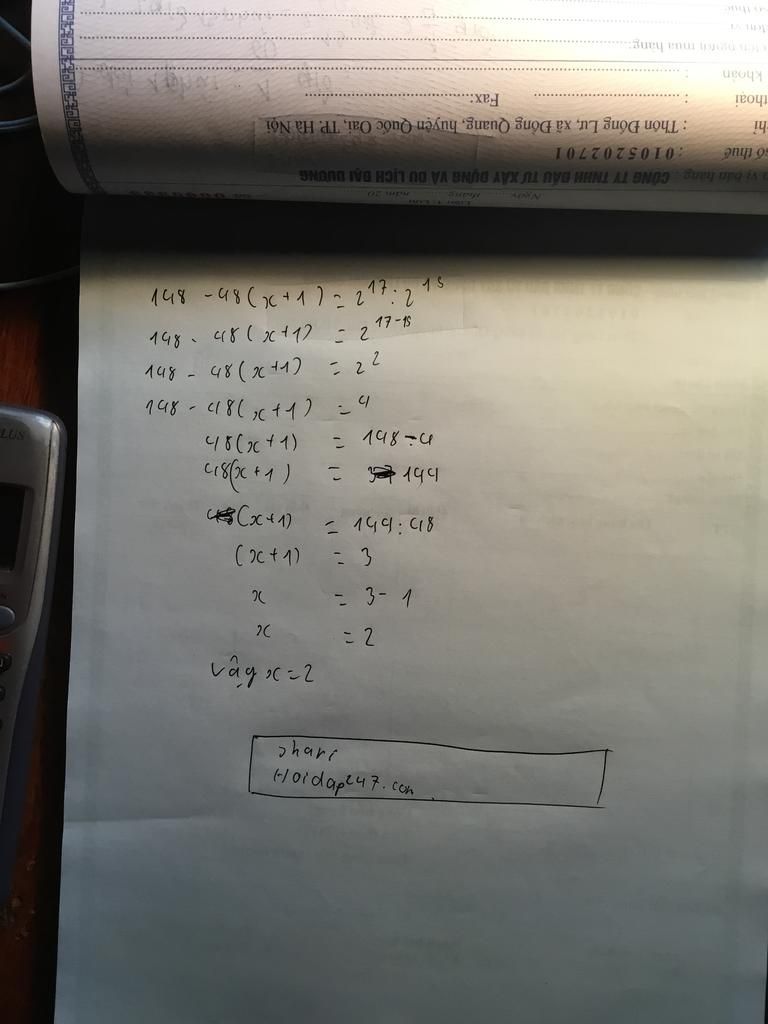 148 - 48(x+1) = 2^17 : 2^15
148 - 48(x+1) = 2^17-15
148 - 48(x+1) = 2^2
148 - 48(x+1) = 4
48(x+1) = 148-4
48(x+1) = 144
(x+1) = 144:48
(x+1) = 3
x = 3-1
x = 2
vậy x=2
share
Hoidap247.com
khoản :
Fax:
: Thôn Đồng Lư, xã Đồng Quang, huyện Quốc Oai, TP. Hà Nội
số thuế : 0105202701
bán hàng: CÔNG TY TNHH ĐẦU TƯ XÂY DỰNG VÀ DU LỊCH ĐẠI DƯƠNG
Ngày tháng năm 20